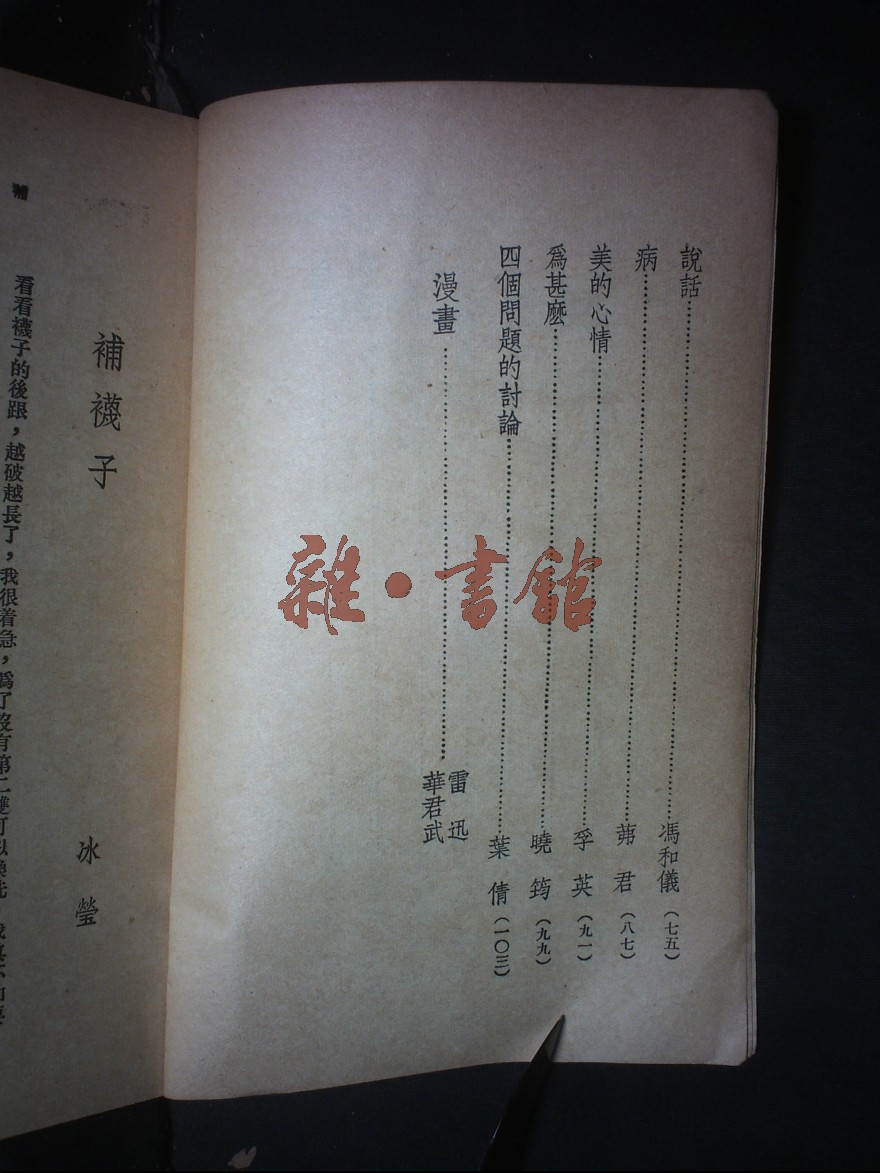 說話……馮和儀(七五)
病……茀君(八七)
美的心情……孚英(九一)
爲甚麼……曉筠(九九)
四個問題的討論……葉倩(一〇三)
漫畫……雷迅 華君武
雜・書館
補
補襪子
冰瑩
看看襪子的後跟,越破越長了,我很着急,爲了沒有第二雙可以換洗